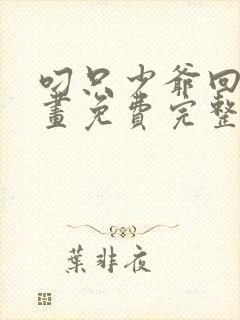 叼只少爷回
画免费完整
葉非夜